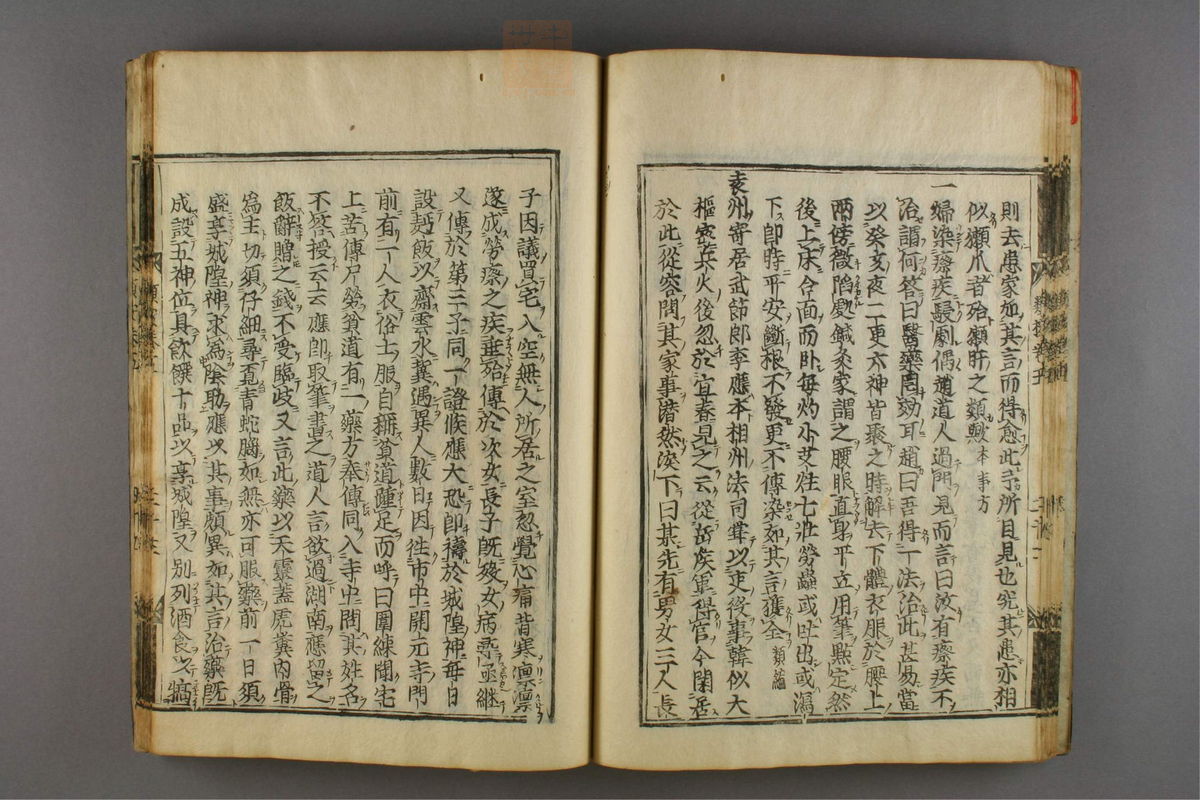 則去患家如其言而得愈此予所目見也究其患亦相
似獺爪者殆獺肝之類歟本事方
一婦染瘵疾駸劇偶趙道人過門見而言曰汝有瘵疾不
治謂何答曰醫藥罔効耳趙曰吾得一法治此甚易當
以癸亥夜二更六神皆聚之時解去下體衣服於腰上
兩傍微陷處鍼灸家謂之腰眼直身平立用筆點定然
後上床合面而卧每灼小艾炷七壯勞蠱或吐出或瀉
下即時平安斷根不發更不傳染如其言獲全類編
袁州寄居武節郎李應本相州法司𮗚以吏役事韓似夫
樞密兵火後忽於宜春見之云從岳侯軍得官今閑居
於此從容問其家事潸然淚下曰某先有男女三人長
子因議買宅入空無人所居之室忽覺心痛背寒凛凛
遂成勞瘵之疾垂殆傳於次女長子既殁女病亟繼
又傳於第三子同一證候應大恐即禱於城隍神每日
設麵飯以齋雲水冀遇異人數日因徃市中開元寺門
前有一人衣俗士服自稱貧道踵足而呼曰團練閤宅
上苦傳尸勞貧道有一藥方奉傳同入寺中問其姓名
不答授云云應即取筆書之道人言欲過湖南應留之
飯辭贈之錢不受臨歧又言此藥以天靈蓋虎糞內骨
爲主切須仔細尋覔青蛇腦如無亦可服藥前一日須
盛享城隍神求爲陰助應以其事頗異如其言治藥既
成設五神位具飲饌十品以享城隍又別列酒食以犒